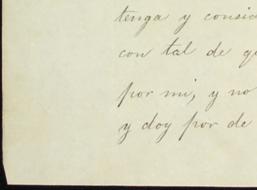 tenga y consid
con tal de qu
por mi, y no
y doy por de